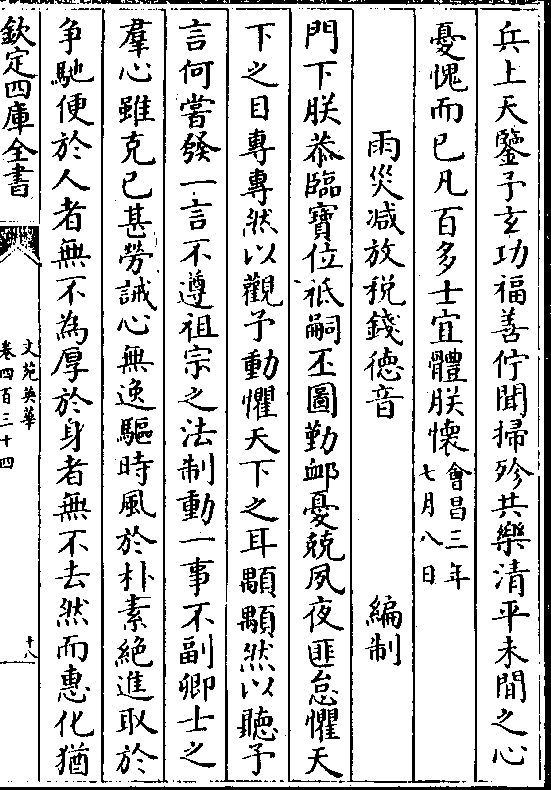 兵上天鑒予玄功福善佇聞掃殄共樂清平未間之心
憂愧而已凡百多士宜體朕懷會昌三年七月八日
雨災减放税錢德音 編制
門下朕恭臨寶位祗嗣丕圖勤䘏憂兢夙夜匪怠懼天
下之目專專然以觀予動懼天下之耳顒顒然以聽予
言何嘗發一言不遵祖宗之法制動一事不副卿士之
羣心雖克已甚勞誡心無逸驅時風於朴素絶進取於
争馳便於人者無不為厚於身者無不去然而惠化猶
欽定四庫全書
文苑英華
卷四百三十四
十八